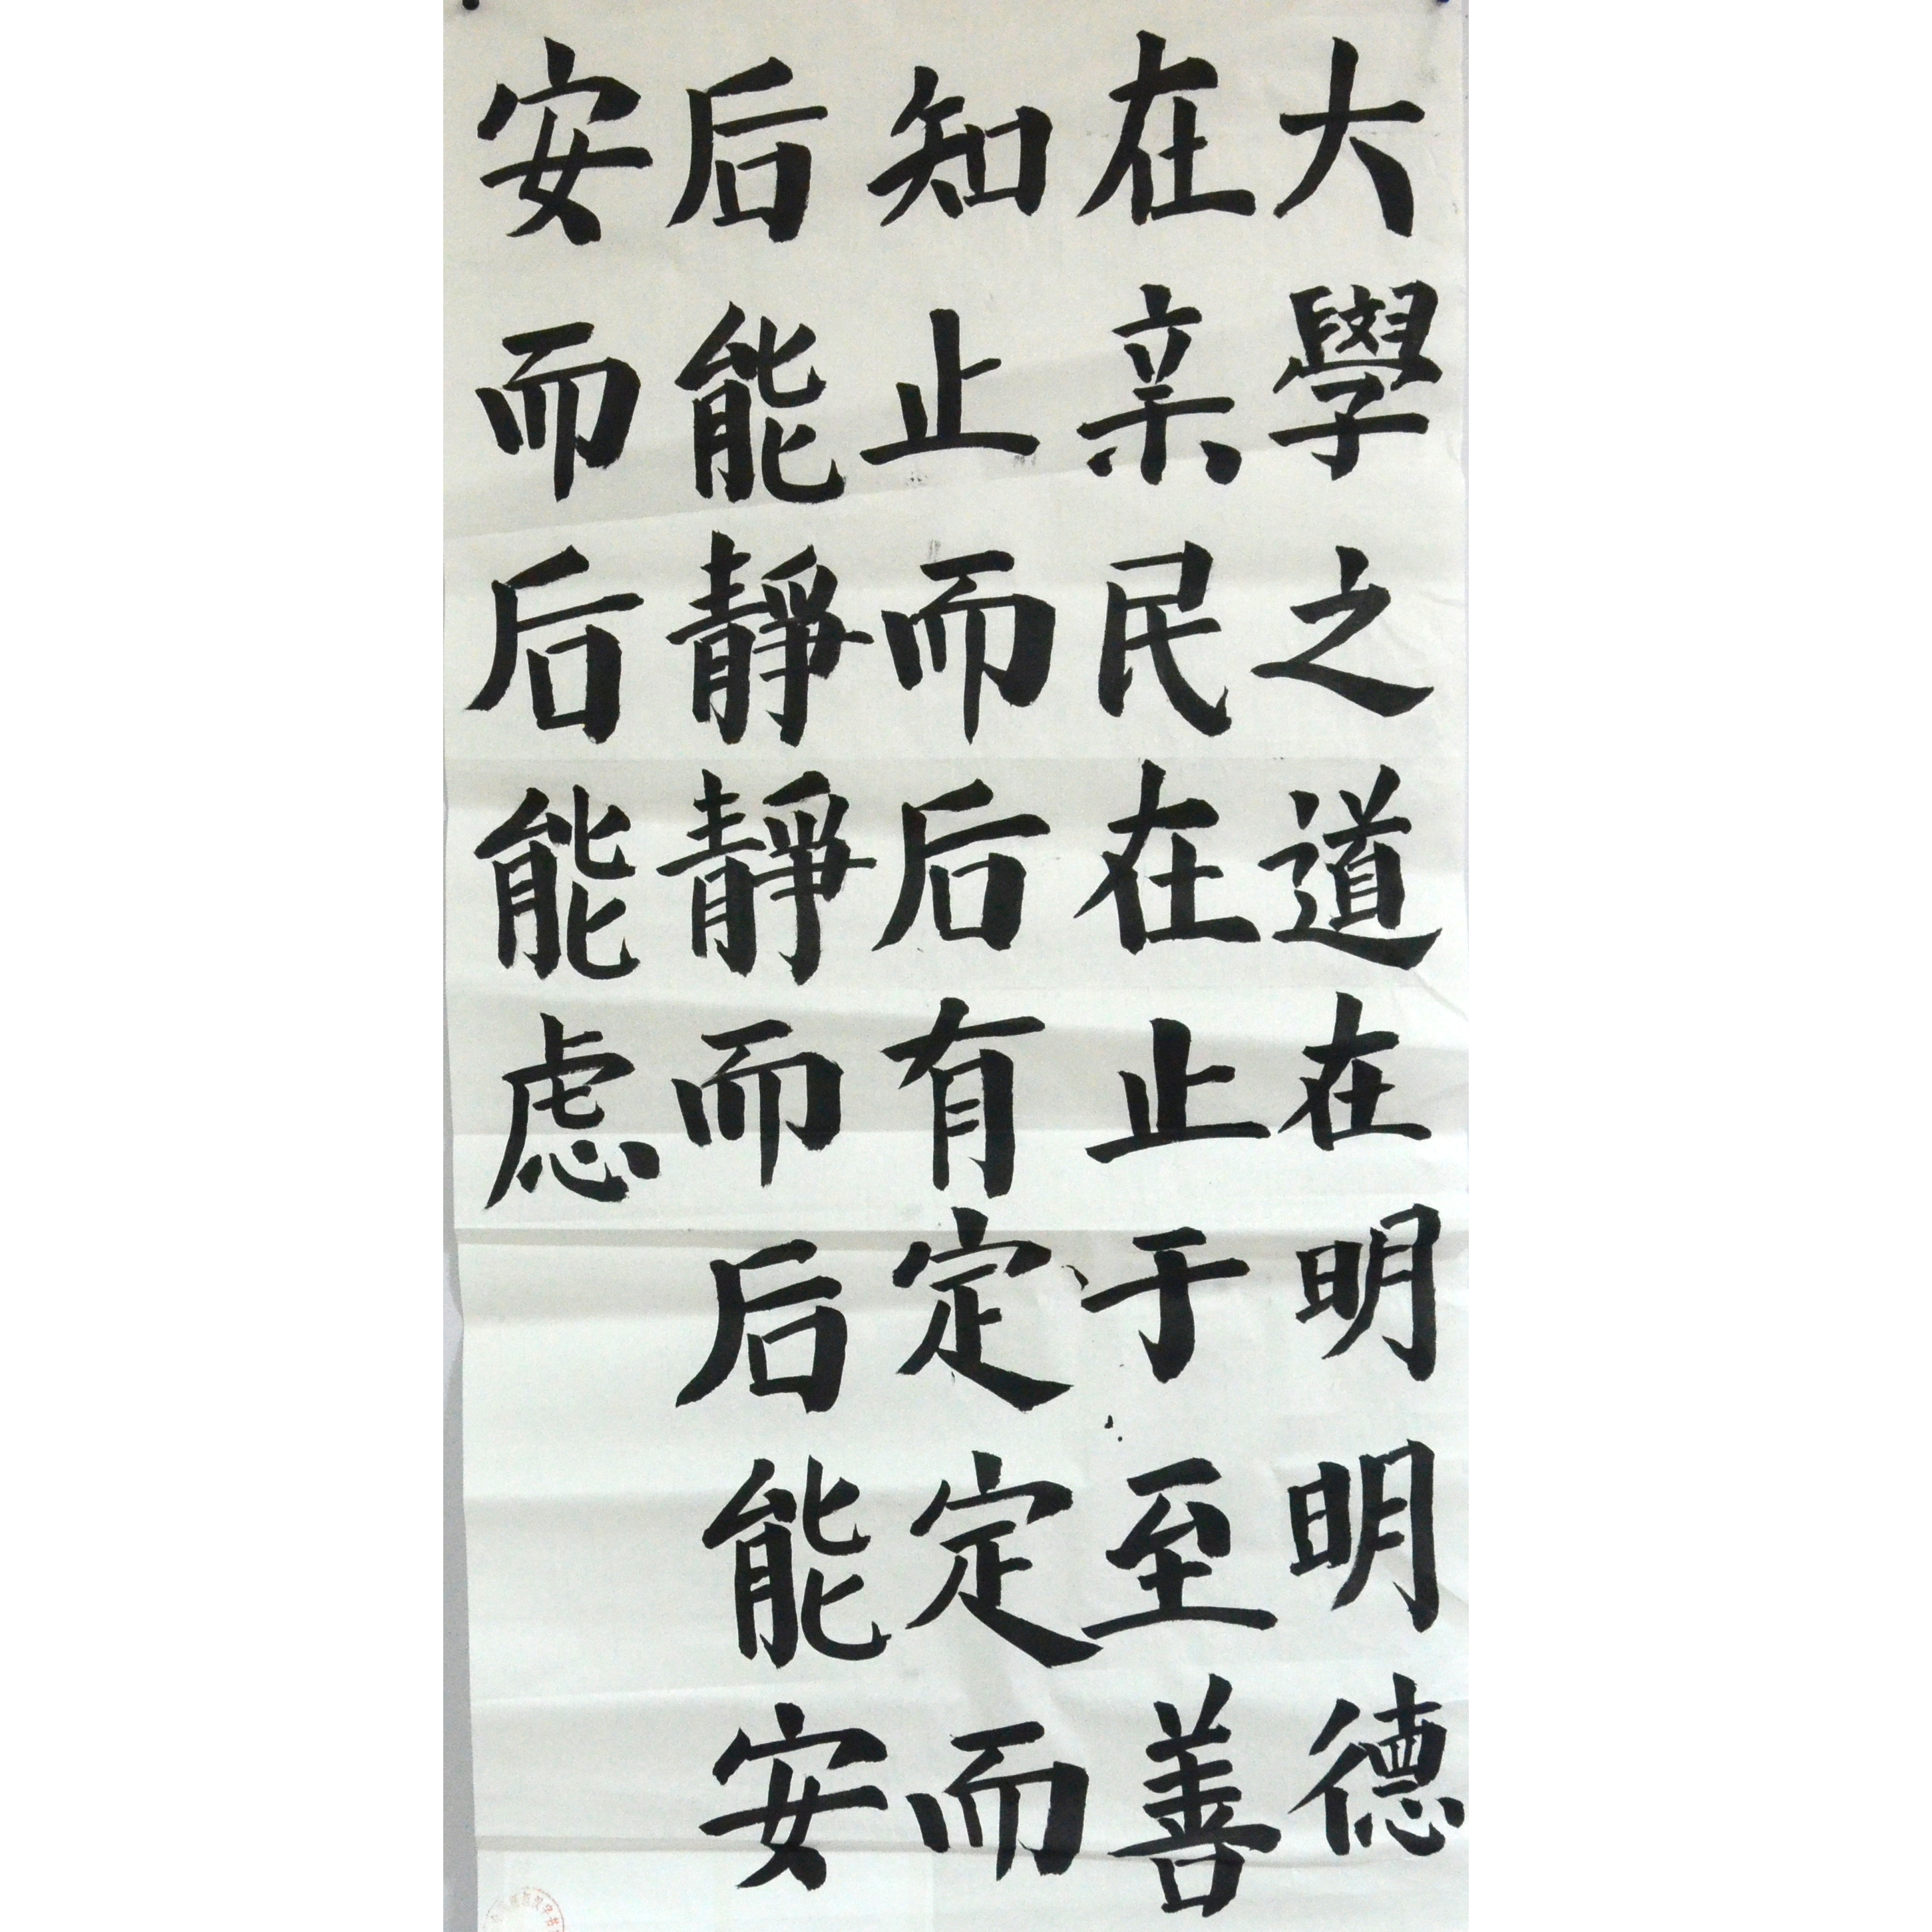 大學之道在明明德
在亲民在止于至善
知止而后有定定而
后能靜靜而后能安
安而后能虑